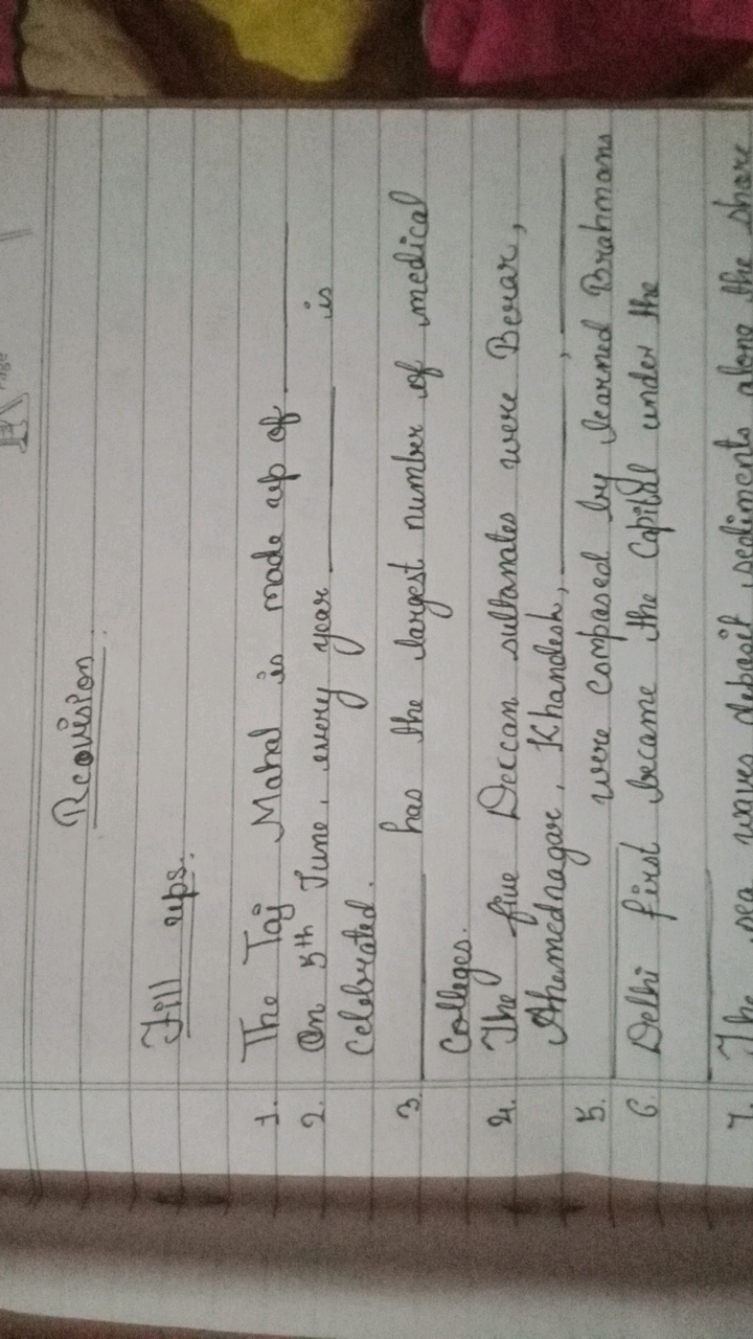 Page
Revision
Fill ups.
1. The Taj Mahal is made up of ______
2. On 5th June, every year ______ is
celebrated.
3. ______ has the largest number of medical
Colleges.
4. The five Deccan sultanates were Berar,
Ahemednagar, Khandesh, ______, ______
5. ______ were compased by learned Brahmans
6. Delhi first became the Capital under the
______
7. The sea waves deposit sediments along the shore